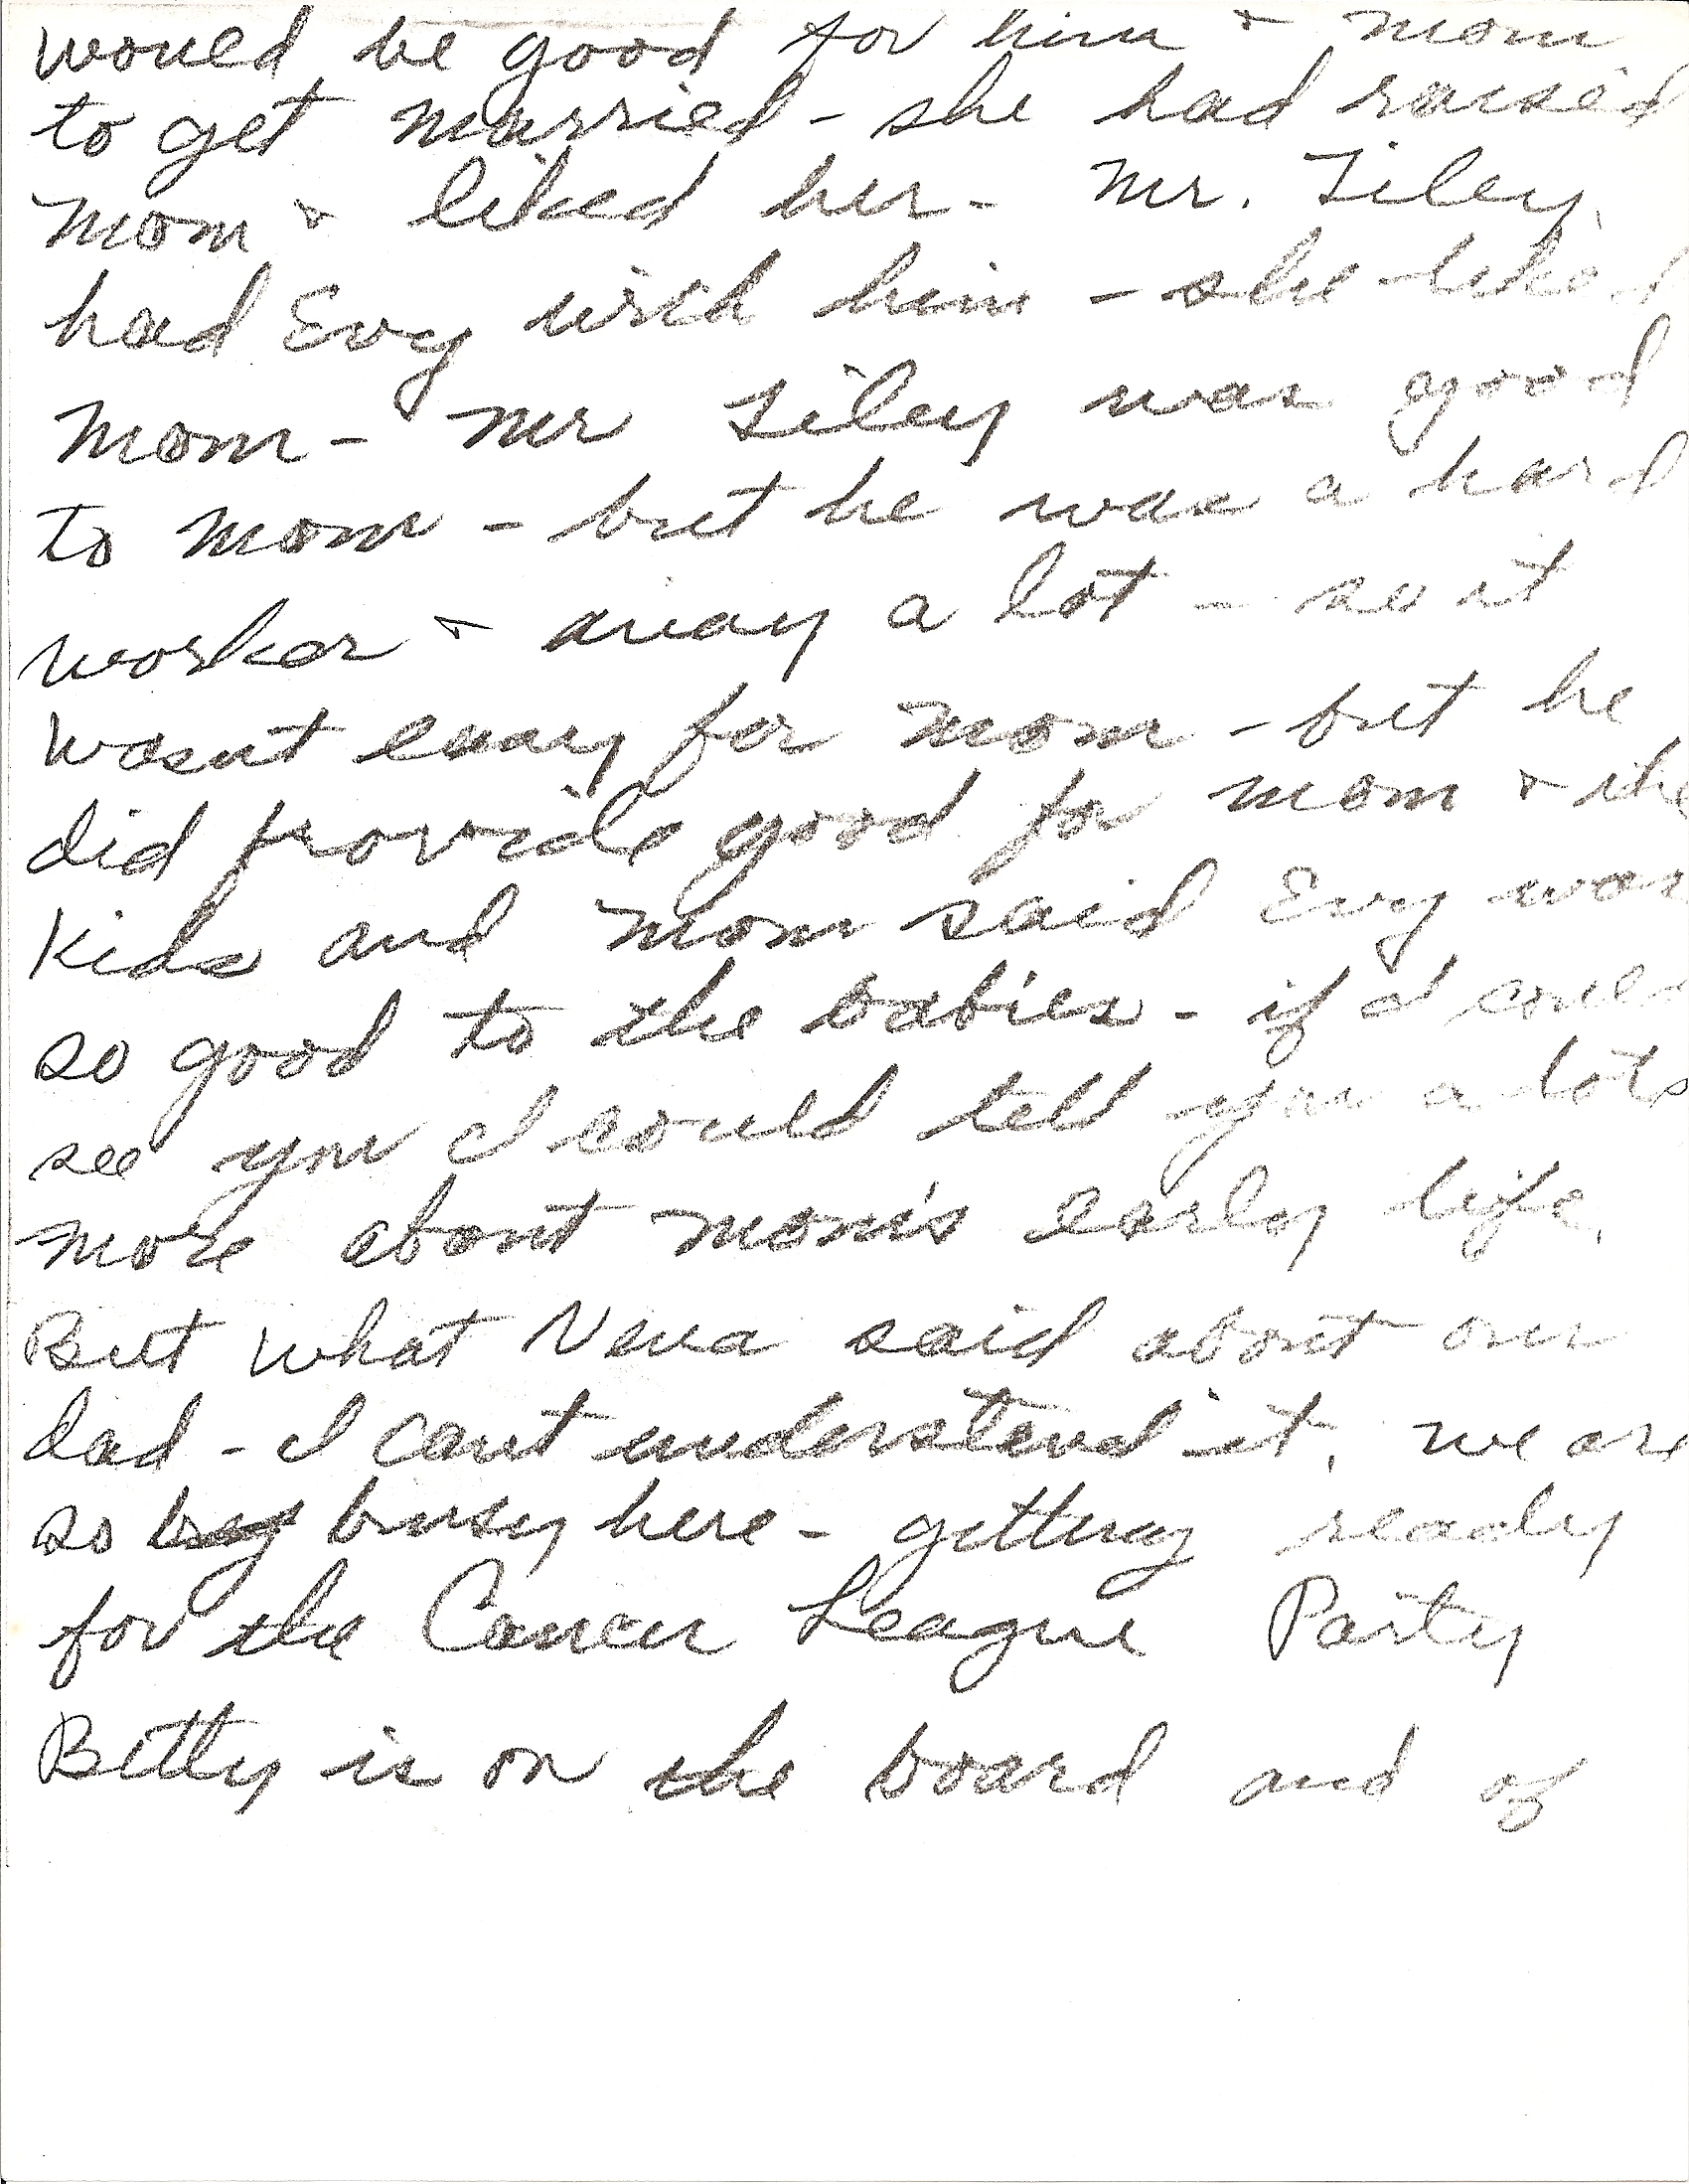 would be good for him & mom
to get married - she had raised
mom & liked her - Mr. Tiley
had Evy with him - she liked
mom - Mr Tiley was good
to mom - but he was a hard
worker & away a lot - so it
wasnt easy for mom - but he
did provide good for mom & the
kids and mom said Evy was
so good to the babies - if I could
see you I could tell you a lots
more about mom's early life.
But what Neva said about our
dad - I cant understand it. we are
so busy here - getting ready
for the Cancer League Party
Betty is on the board and of